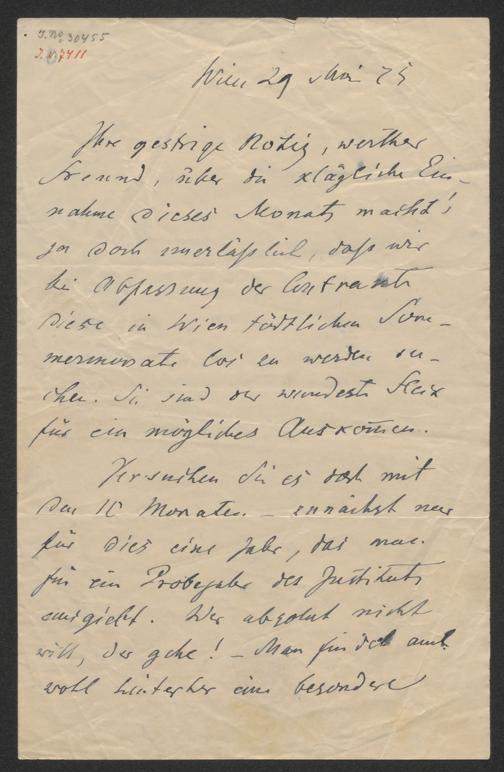 J. No 30455
J. N. 7411
Wien 29 Mai 75
Ihre gestrige Notiz, werther
Freund, über die klägliche Ein-
nahme dieses Monats macht's
ja doch unerläßlich, daß wir
bei Abfassung der Contrakte
diese in Wien tödtlichen Som-
mermonate los zu werden su-
chen. Sie sind der wundeste Fleck
für ein mögliches Auskom̄en.
Versuchen Sie es doch mit
den 10 Monaten – zunächst nur
für dies eine Jahr, das man
für ein Probejahr des Instituts
ausgiebt. Wer absolut nicht
will, der gehe! – Man findet auch
wohl hinterher eine besondere